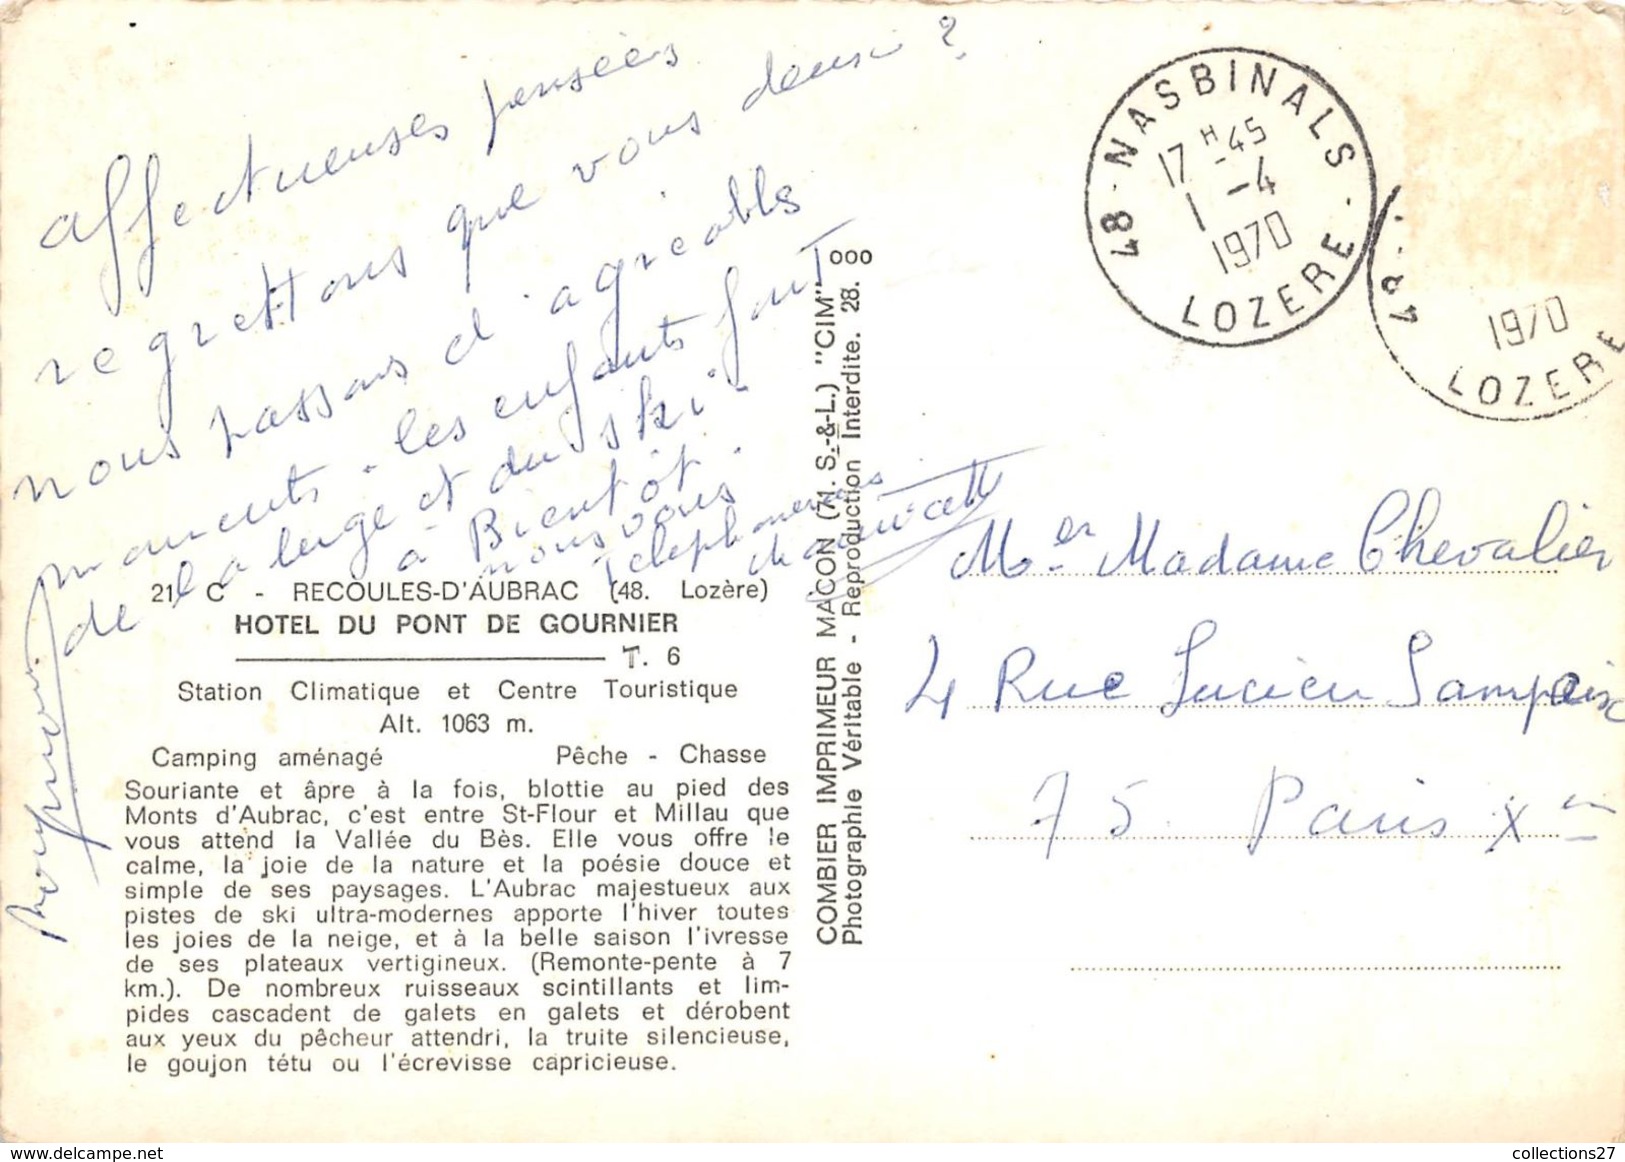 affectueuses pensées
regrettons que vous deux ?
nous passons d'agréables
moments. les enfants font
de la luge et du ski.
à Bientôt.
nous vous
telephonerons
21 C - RECOULES-D'AUBRAC (48. Lozère)
HOTEL DU PONT DE GOURNIER
T. 6
Station Climatique et Centre Touristique
Alt. 1063 m.
Camping aménagé Pêche - Chasse
Souriante et âpre à la fois, blottie au pied des
Monts d'Aubrac, c'est entre St-Flour et Millau que
vous attend la Vallée du Bès. Elle vous offre le
calme, la joie de la nature et la poésie douce et
simple de ses paysages. L'Aubrac majestueux aux
pistes de ski ultra-modernes apporte l'hiver toutes
les joies de la neige, et à la belle saison l'ivresse
de ses plateaux vertigineux. (Remonte-pente à 7
km.). De nombreux ruisseaux scintillants et lim-
pides cascadent de galets en galets et dérobent
aux yeux du pêcheur attendri, la truite silencieuse,
le goujon têtu ou l'écrevisse capricieuse.
COMBIER IMPRIMEUR MACON (71. S.-&-L.) "CIM"
Photographie Véritable - Reproduction Interdite. 28.
000
48 - NASBINALS
17 H -45
1 -4
1970
LOZERE
48
1970
LOZERE
Mr et Madame Chevalier
4 Rue Lucien Sampaix
75 Paris Xe
collections27
www.delcampe.net